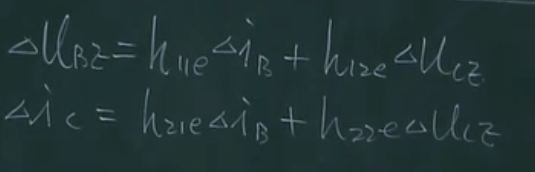 △u_BE = h_11e △i_B + h_12e △u_CE
△i_C = h_21e △i_B + h_22e △u_CE